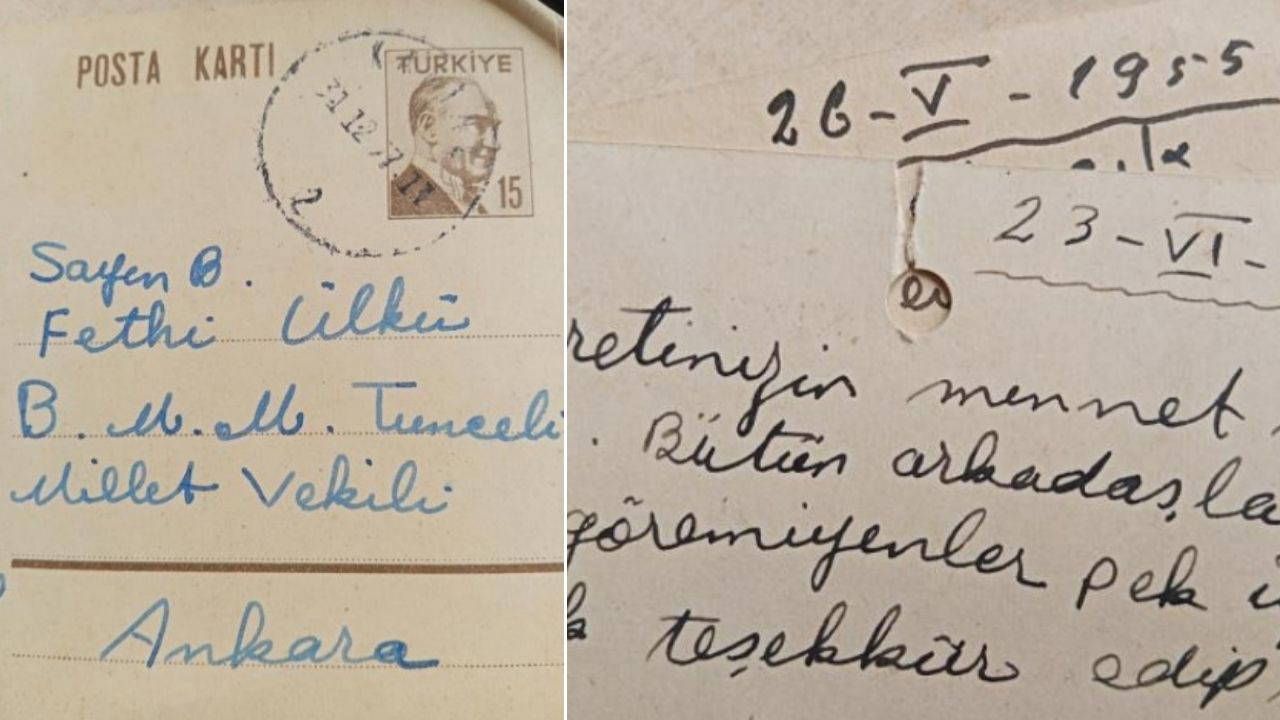 POSTA KARTI
TÜRKİYE
15
31.12
2
Sayın B.
Fethi Ülkü
B. M. M. Tunceli
Millet Vekili
Ankara
26-VI-1955
23-VI-
retinizin minnet
. Bütün arkadaşla
göremiyenler pek
k teşekkür edip,